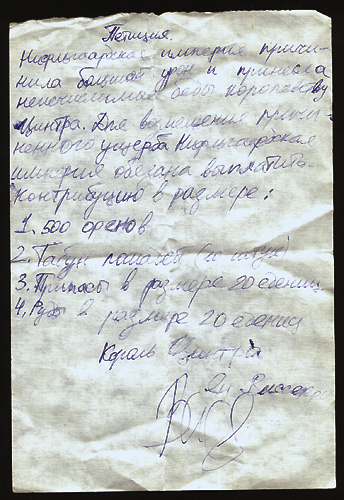 Петиция.
Нифльгаардская империя причи-
нила большой урон и принесла
неисчислимые беды королевству
Цинтра. Для возмещения причи-
ненного ущерба Нифльгаардская
империя обязана выплатить
контрибуцию в размере:
1. 500 оренов
2. Табун лошадей
3. Припасы в размере 20 едениц
4. Руды в размере 20 едениц
Король Цинтры